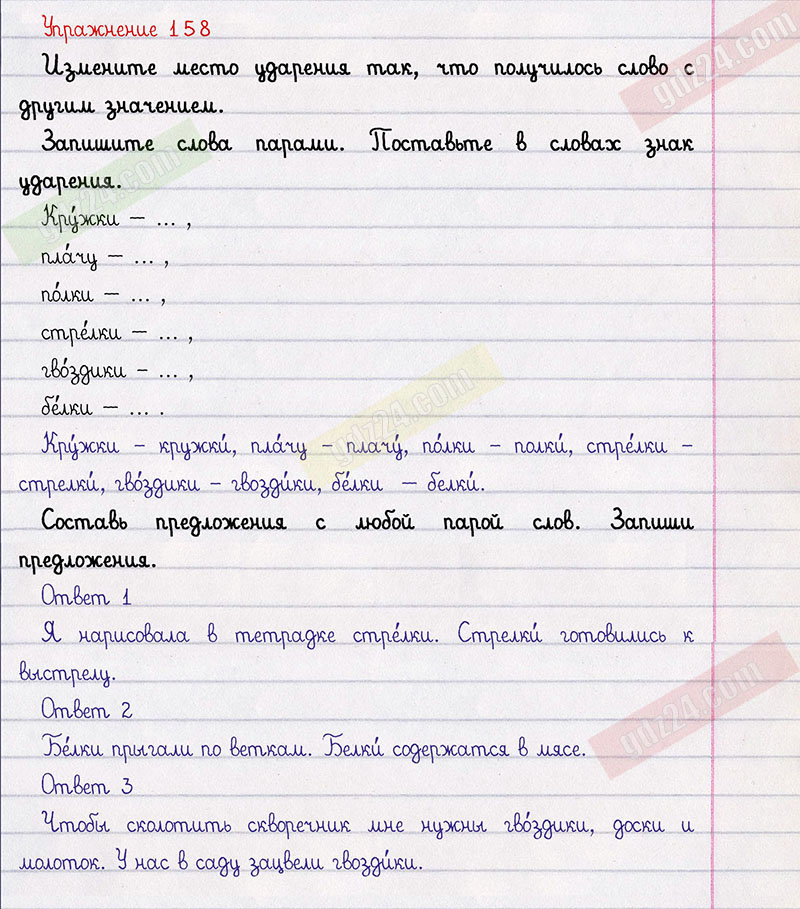 Упражнение 158
Измените место ударения так, что получилось слово с
другим значением.
Запишите слова парами. Поставьте в словах знак
ударения.
Кру́жки – ... ,
пла́чу – ... ,
по́лки – ... ,
стре́лки – ... ,
гво́здики – ... ,
бе́лки – ... .
Кру́жки – кружки́, пла́чу – плачу́, по́лки – полки́, стре́лки –
стрелки́, гво́здики – гвозди́ки, бе́лки – белки́.
Составь предложения с любой парой слов. Запиши
предложения.
Ответ 1
Я нарисовала в тетрадке стре́лки. Стрелки́ готовились к
выстрелу.
Ответ 2
Бе́лки прыгали по веткам. Белки́ содержатся в мясе.
Ответ 3
Чтобы сколотить скворечник мне нужны гво́здики, доски и
молоток. У нас в саду зацвели гвозди́ки.
gdz24.com
gdz24.com
gdz24.com
gdz24.com